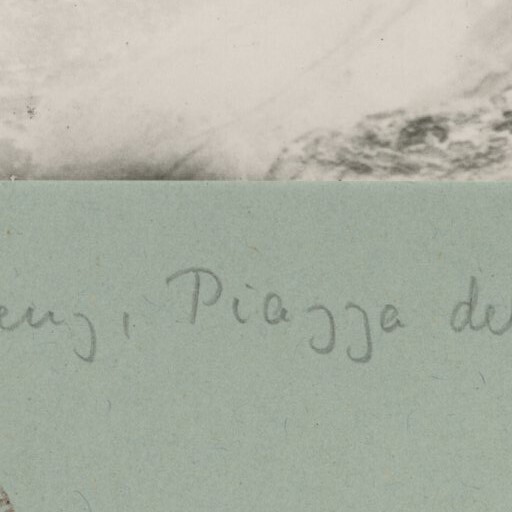 enz, Piazza de